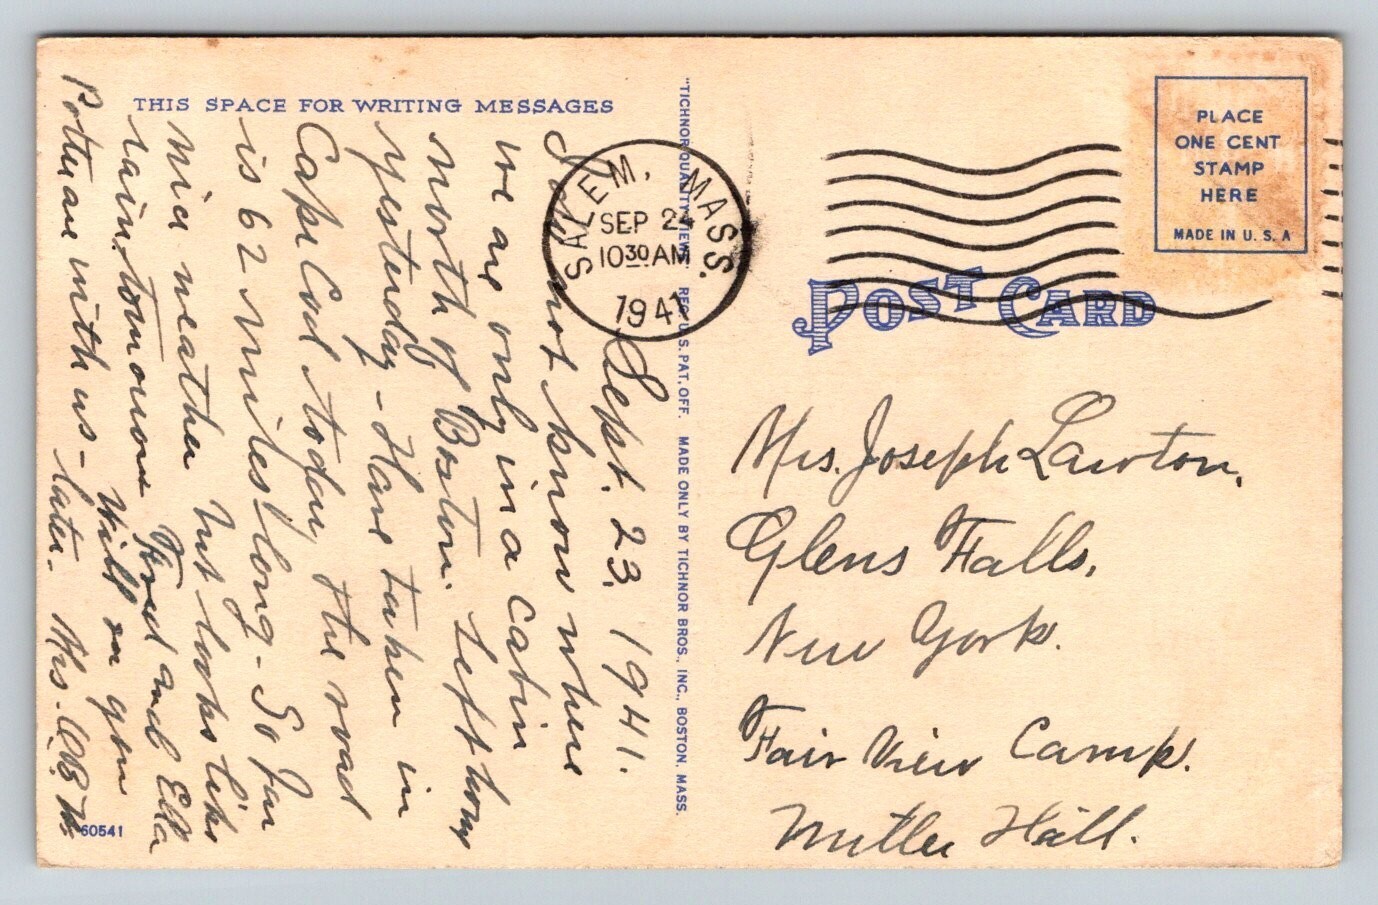 THIS SPACE FOR WRITING MESSAGES
Sept. 23, 1941.
Do not know where
we are only in a cabin
north of Boston. Left home
yesterday - Have taken in
Cape Cod today the road
is 62 miles long - So far
nice weather but looks like
rain tomorrow Fred and Ella
Will on you
Potter are with us - later. Mrs.
60541
"TICHNOR QUALITY VIEWS" REG. U. S. PAT. OFF. MADE ONLY BY TICHNOR BROS., INC., BOSTON, MASS.
SALEM, MASS.
SEP 24
10 30 AM
1941
PLACE
ONE CENT
STAMP
HERE
MADE IN U. S. A
POST CARD
Mrs. Joseph Lawton,
Glens Falls,
New York.
Fair View Camp.
Hill.